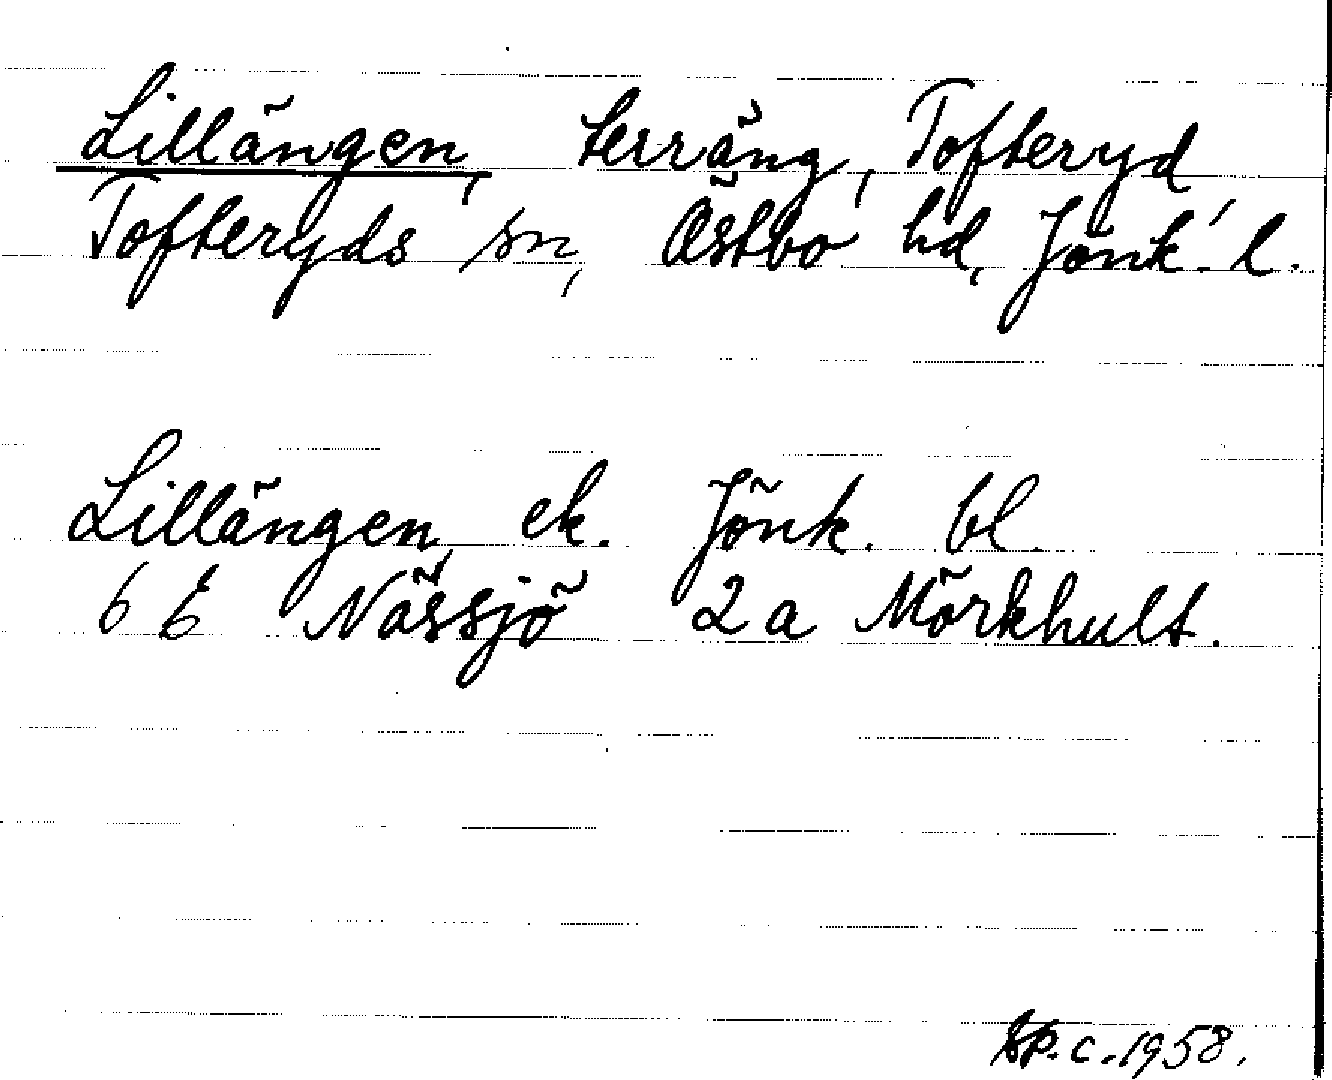 Lillängen, terräng, Tofteryd
Tofteryds sn, Östbo hd, Jönk. l.
Lillängen, ek. Jönk. bl.
6 E Nässjö 2a Mörkhult.
c. 1958.